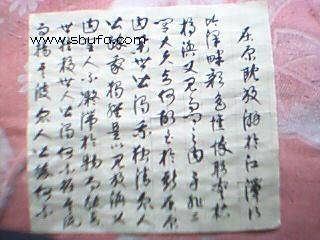 www.shufa.com
屈原既放游於江潭行
吟澤畔顏色憔悴形容枯
槁漁父見而問之曰子非三
閭大夫與何故至於斯屈原
曰舉世皆濁我獨清衆人
皆醉我獨醒是以見放漁父
曰聖人不凝滯於物而能與
世推移世人皆濁何不淈其泥
而揚其波衆人皆醉何不